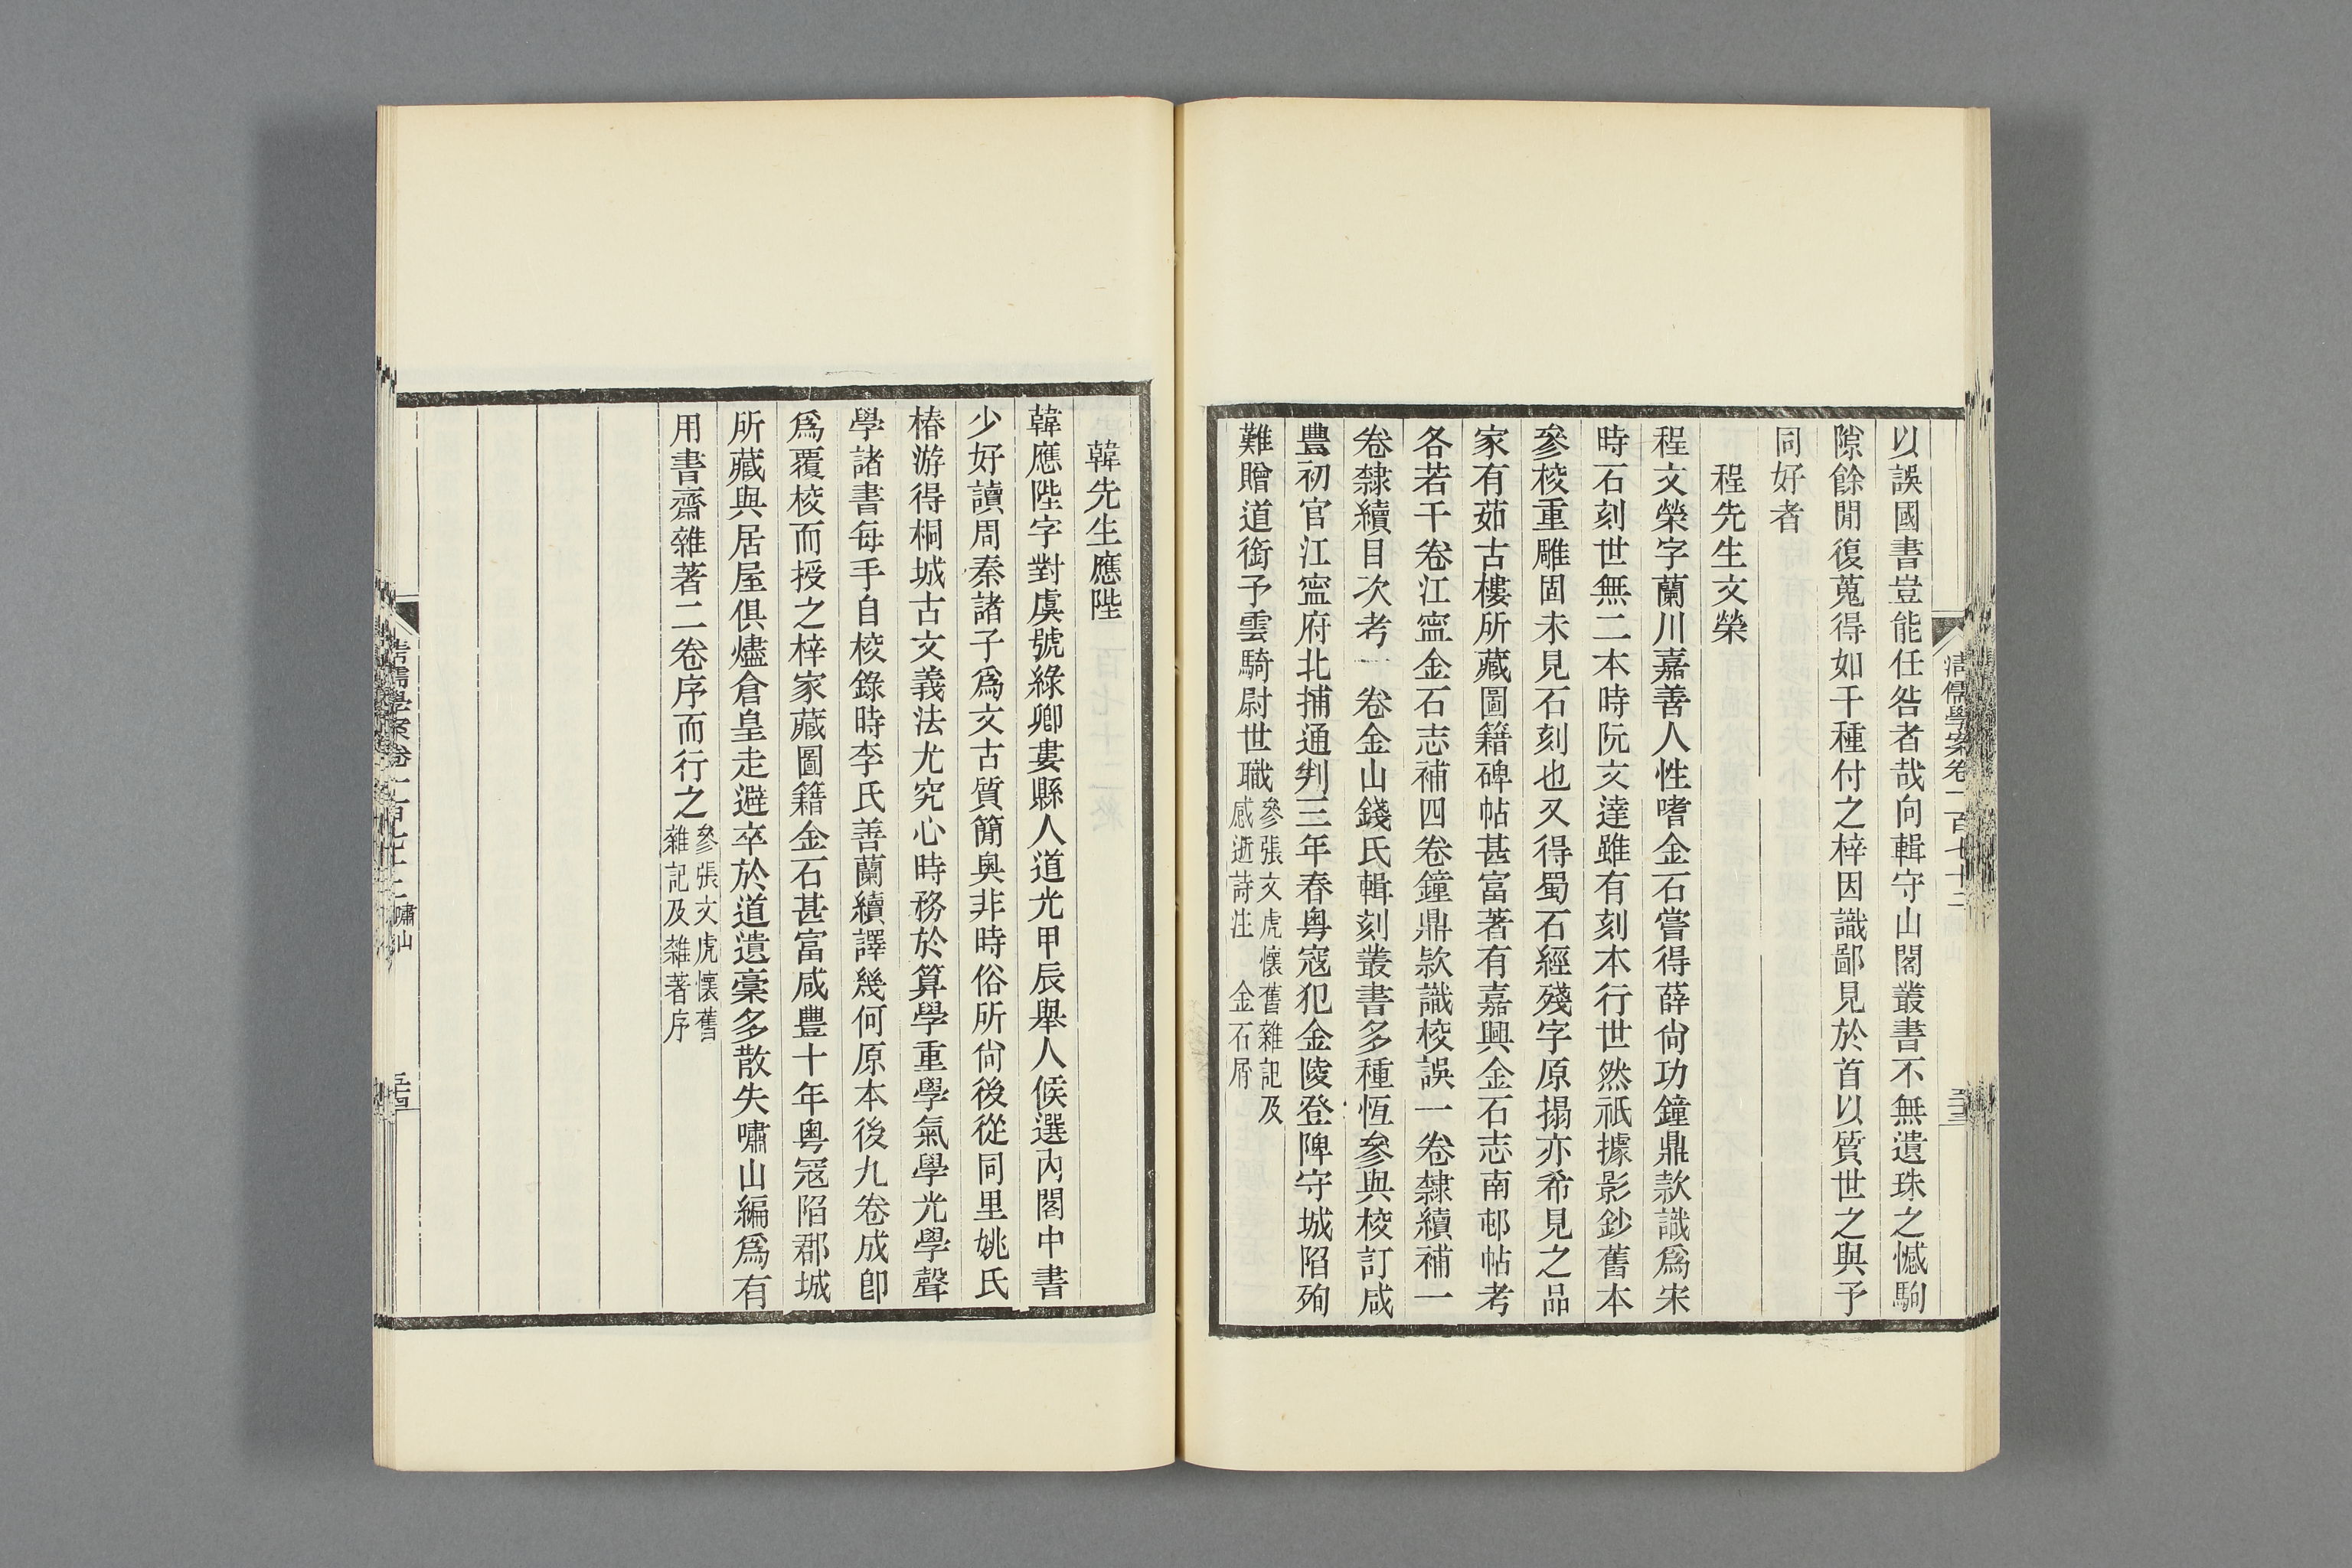 以誤國書豈能任咎者哉向輯守山閣叢書不無遺珠之憾駒
隙餘閒復蒐得如干種付之梓因識鄙見於首以質世之與予
同好者
程先生文榮
程文榮字蘭川嘉善人性嗜金石嘗得薛尙功鐘鼎款識爲宋
時石刻世無二本時阮文達雖有刻本行世然祇據影鈔舊本
參校重雕固未見石刻也又得蜀石經殘字原搨亦希見之品
家有茹古樓所藏圖籍碑帖甚富著有嘉興金石志南邨帖考
各若干卷江寍金石志補四卷鐘鼎款識校誤一卷隸續補一
卷隸續目次考一卷金山錢氏輯刻叢書多種恆參與校訂咸
豐初官江寍府北捕通判三年春粤寇犯金陵登陴守城陷殉
難贈道銜予雲騎尉世職參張文虎懷舊雜記及
感逝詩注　金石屑
清儒學案卷一百七十二
韓先生應陛
韓應陛字對虞號綠卿婁縣人道光甲辰舉人候選內閣中書
少好讀周秦諸子爲文古質簡奧非時俗所尙後從同里姚氏
椿游得桐城古文義法尤究心時務於算學重學氣學光學聲
學諸書每手自校錄時李氏善蘭續譯幾何原本後九卷成卽
爲覆校而授之梓家藏圖籍金石甚富咸豐十年粤寇陷郡城
所藏與居屋俱燼倉皇走避卒於道遺稾多散失嘯山編爲有
用書齋雜著二卷序而行之參張文虎懷舊
雜記及雜著序
清儒學案卷一百七十二　嘯山